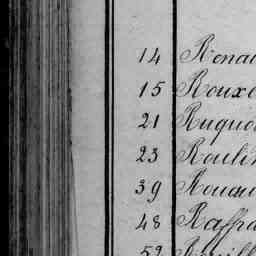 14 Renau
15 Rouxe
21 Ruquo
23 Roulin
39 Rouau
48 Raffra
52 Rouill